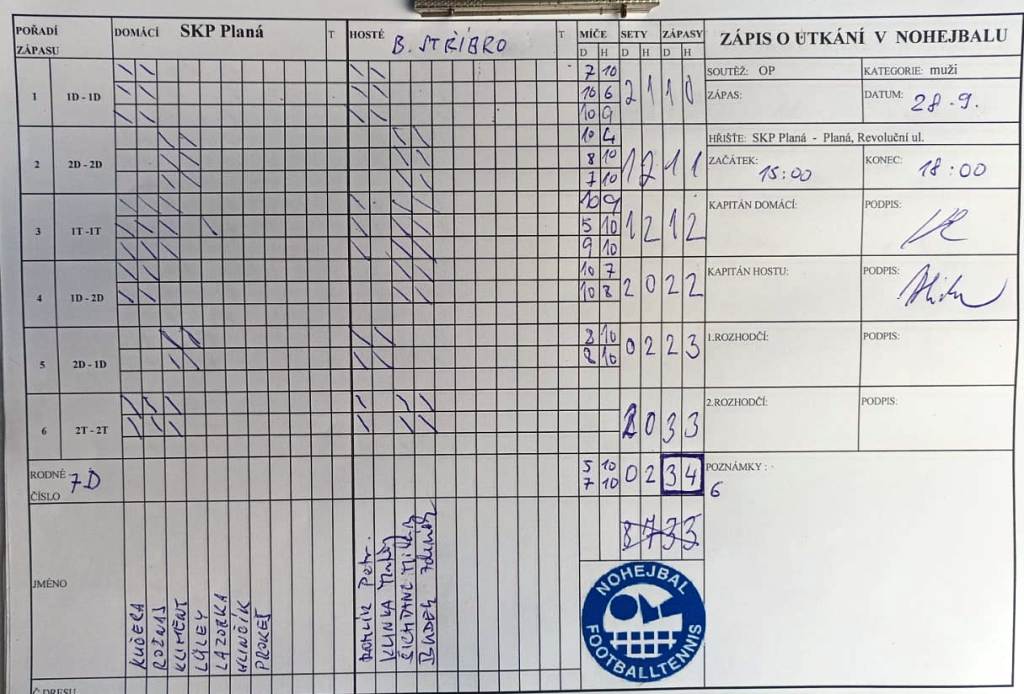 POŘADÍ ZÁPASU DOMÁCÍ SKP Planá T HOSTÉ B. STŘÍBRO T MÍČE SETY ZÁPASY
D H D H D H
ZÁPIS O UTKÁNÍ V NOHEJBALU
SOUTĚŽ: OP KATEGORIE: muži
ZÁPAS: DATUM: 28.9.
HŘIŠTE: SKP Planá - Planá, Revoluční ul.
ZAČÁTEK: 15:00 KONEC: 18:00
KAPITÁN DOMÁCÍ: PODPIS:
KAPITÁN HOSTU: PODPIS:
1.ROZHODČÍ: PODPIS:
2.ROZHODČÍ: PODPIS:
POZNÁMKY :
6
1 1D - 1D
7 10
10 6 2 1 1 0
10 9
2 2D - 2D
10 4
8 10 1 2 1 1
7 10
3 1T -1T
10 9
5 10 1 2 1 2
9 10
4 1D - 2D
10 7
10 8 2 0 2 2
5 2D - 1D
8 10
8 10 0 2 2 3
6 2T - 2T
2 0 3 3
RODNÉ ČÍSLO 7D
5 10
7 10 0 2 3 4
8 7 3 3
JMÉNO
KUČERA
ROŽNAS
KLIMENT
CÍLEY
LAZORKA
HLINČÍK
PROKEŠ
Petr.
KLINKA
Zdeněk
NOHEJBAL
FOOTBALLTENNIS
Č.DRESU